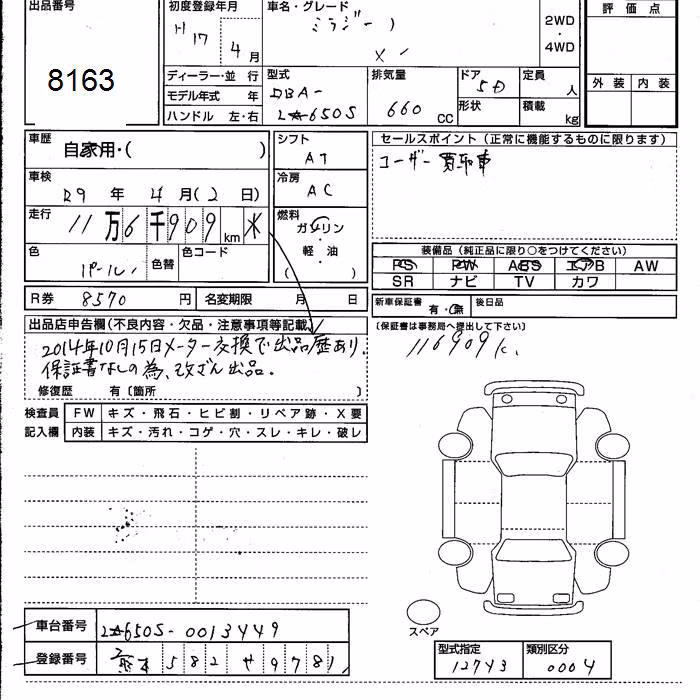 出品番号
8163
初度登録年月
H17 4月
車名・グレード
ミラジーノ
X
2WD
・
4WD
評価点
外装 内装
ディーラー・並 行
モデル年式 年
ハンドル 左・右
型式
DBA-
L☆650S
排気量
660 CC
ドア
5D
形状
定員
人
積載
kg
車歴
自家用・( )
車検
29 年 4月(2日)
走行
11万6千909km ※
色
パール
色替
色コード
R券 8570 円 名変期限 月 日
シフト
AT
冷房
AC
燃料
ガソリン
・
軽・油
( )
セールスポイント(正常に機能するものに限ります)
ユーザー買取車
装備品(純正品に限り○をつけてください)
PS PW ABS エアB AW
SR ナビ TV カワ
新車保証書 有・無 後日品
(保証書は事務局へ提出して下さい)
116909K
出品店申告欄(不良内容・欠品・注意事項等記載)
2014年10月15日メーター交換で出品歴あり。
保証書なしの為、改ざん出品。
修復歴 有〔箇所 〕
検査員 FW キズ・飛石・ヒビ割・リペア跡・X要
記入欄 内装 キズ・汚れ・コゲ・穴・スレ・キレ・破レ
スペア
車台番号 L☆650S-0013449
登録番号 熊本 582 や 9781
型式指定 類別区分
12743 0004